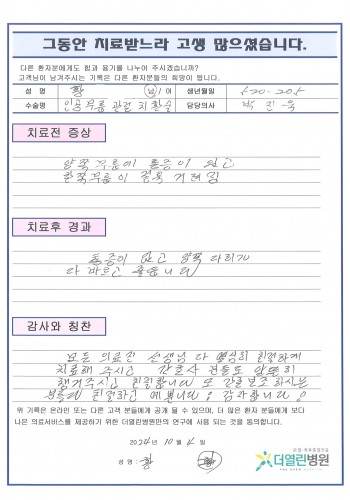 그동안 치료받느라 고생 많으셨습니다.
다른 환자분에게도 힘과 용기를 나누어 주시겠습니까?
고객님이 남겨주시는 기록은 다른 환자분들의 희망이 됩니다.
성 명 황 남 / 여 생년월일
수술명 인공무릎관절치환술 담당의사 박진욱
치료전 증상
양쪽 무릎에 통증이 있고
한쪽무릎이
치료후 경과
통증이 없고 양쪽 다리가
다 바르고 좋습니다
감사와 칭찬
모든 의료진 선생님 다 열심히 친절하게
치료해 주시고 간호사 분들도
챙겨주시고 친절합니다 또 간호보조하시는
분들도 친절하고 예쁩니다 감사합니다
위 기록은 온라인 또는 다른 고객 분들에게 공개 될 수 있으며, 더 많은 환자 분들에게 보다
나은 의료서비스를 제공하기 위한 더열린병원만의 연구에 사용 되는 것을 동의합니다.
2024 년 10 월 4 일
성 명 : 황
더열린병원